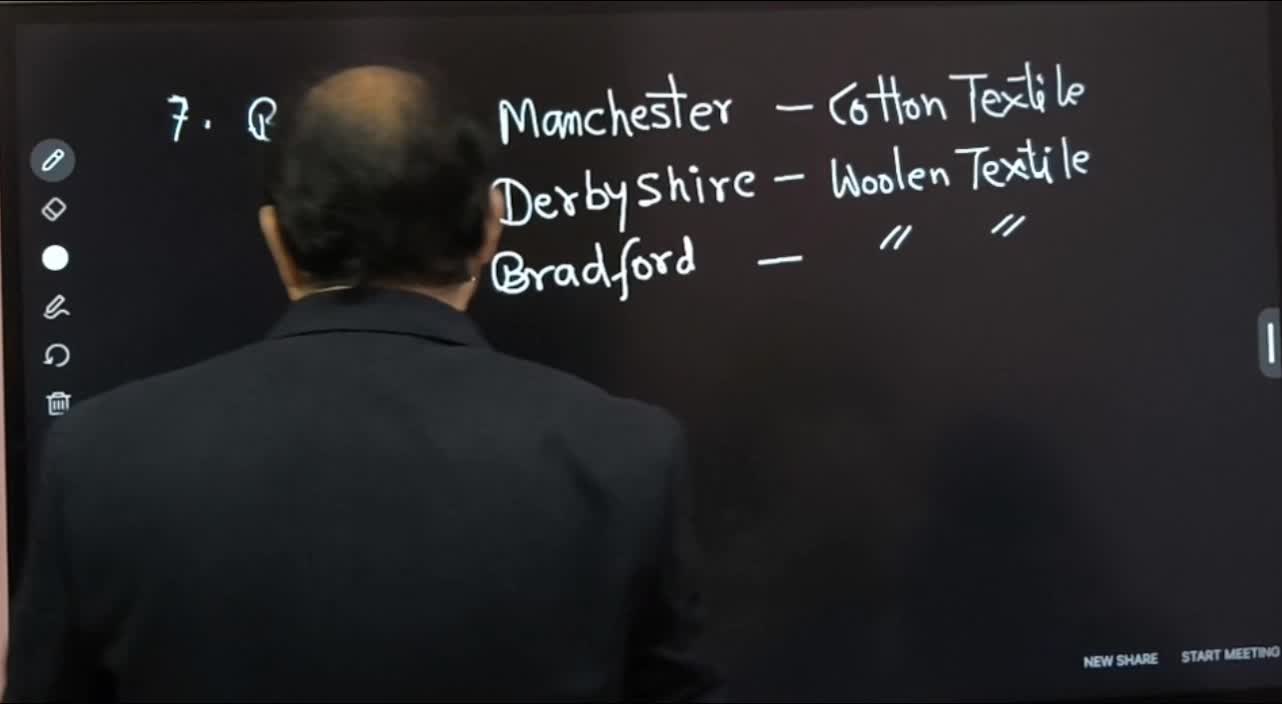 7. Manchester – Cotton Textile
Derbyshire – Woolen Textile
Bradford – " "
NEW SHARE START MEETING